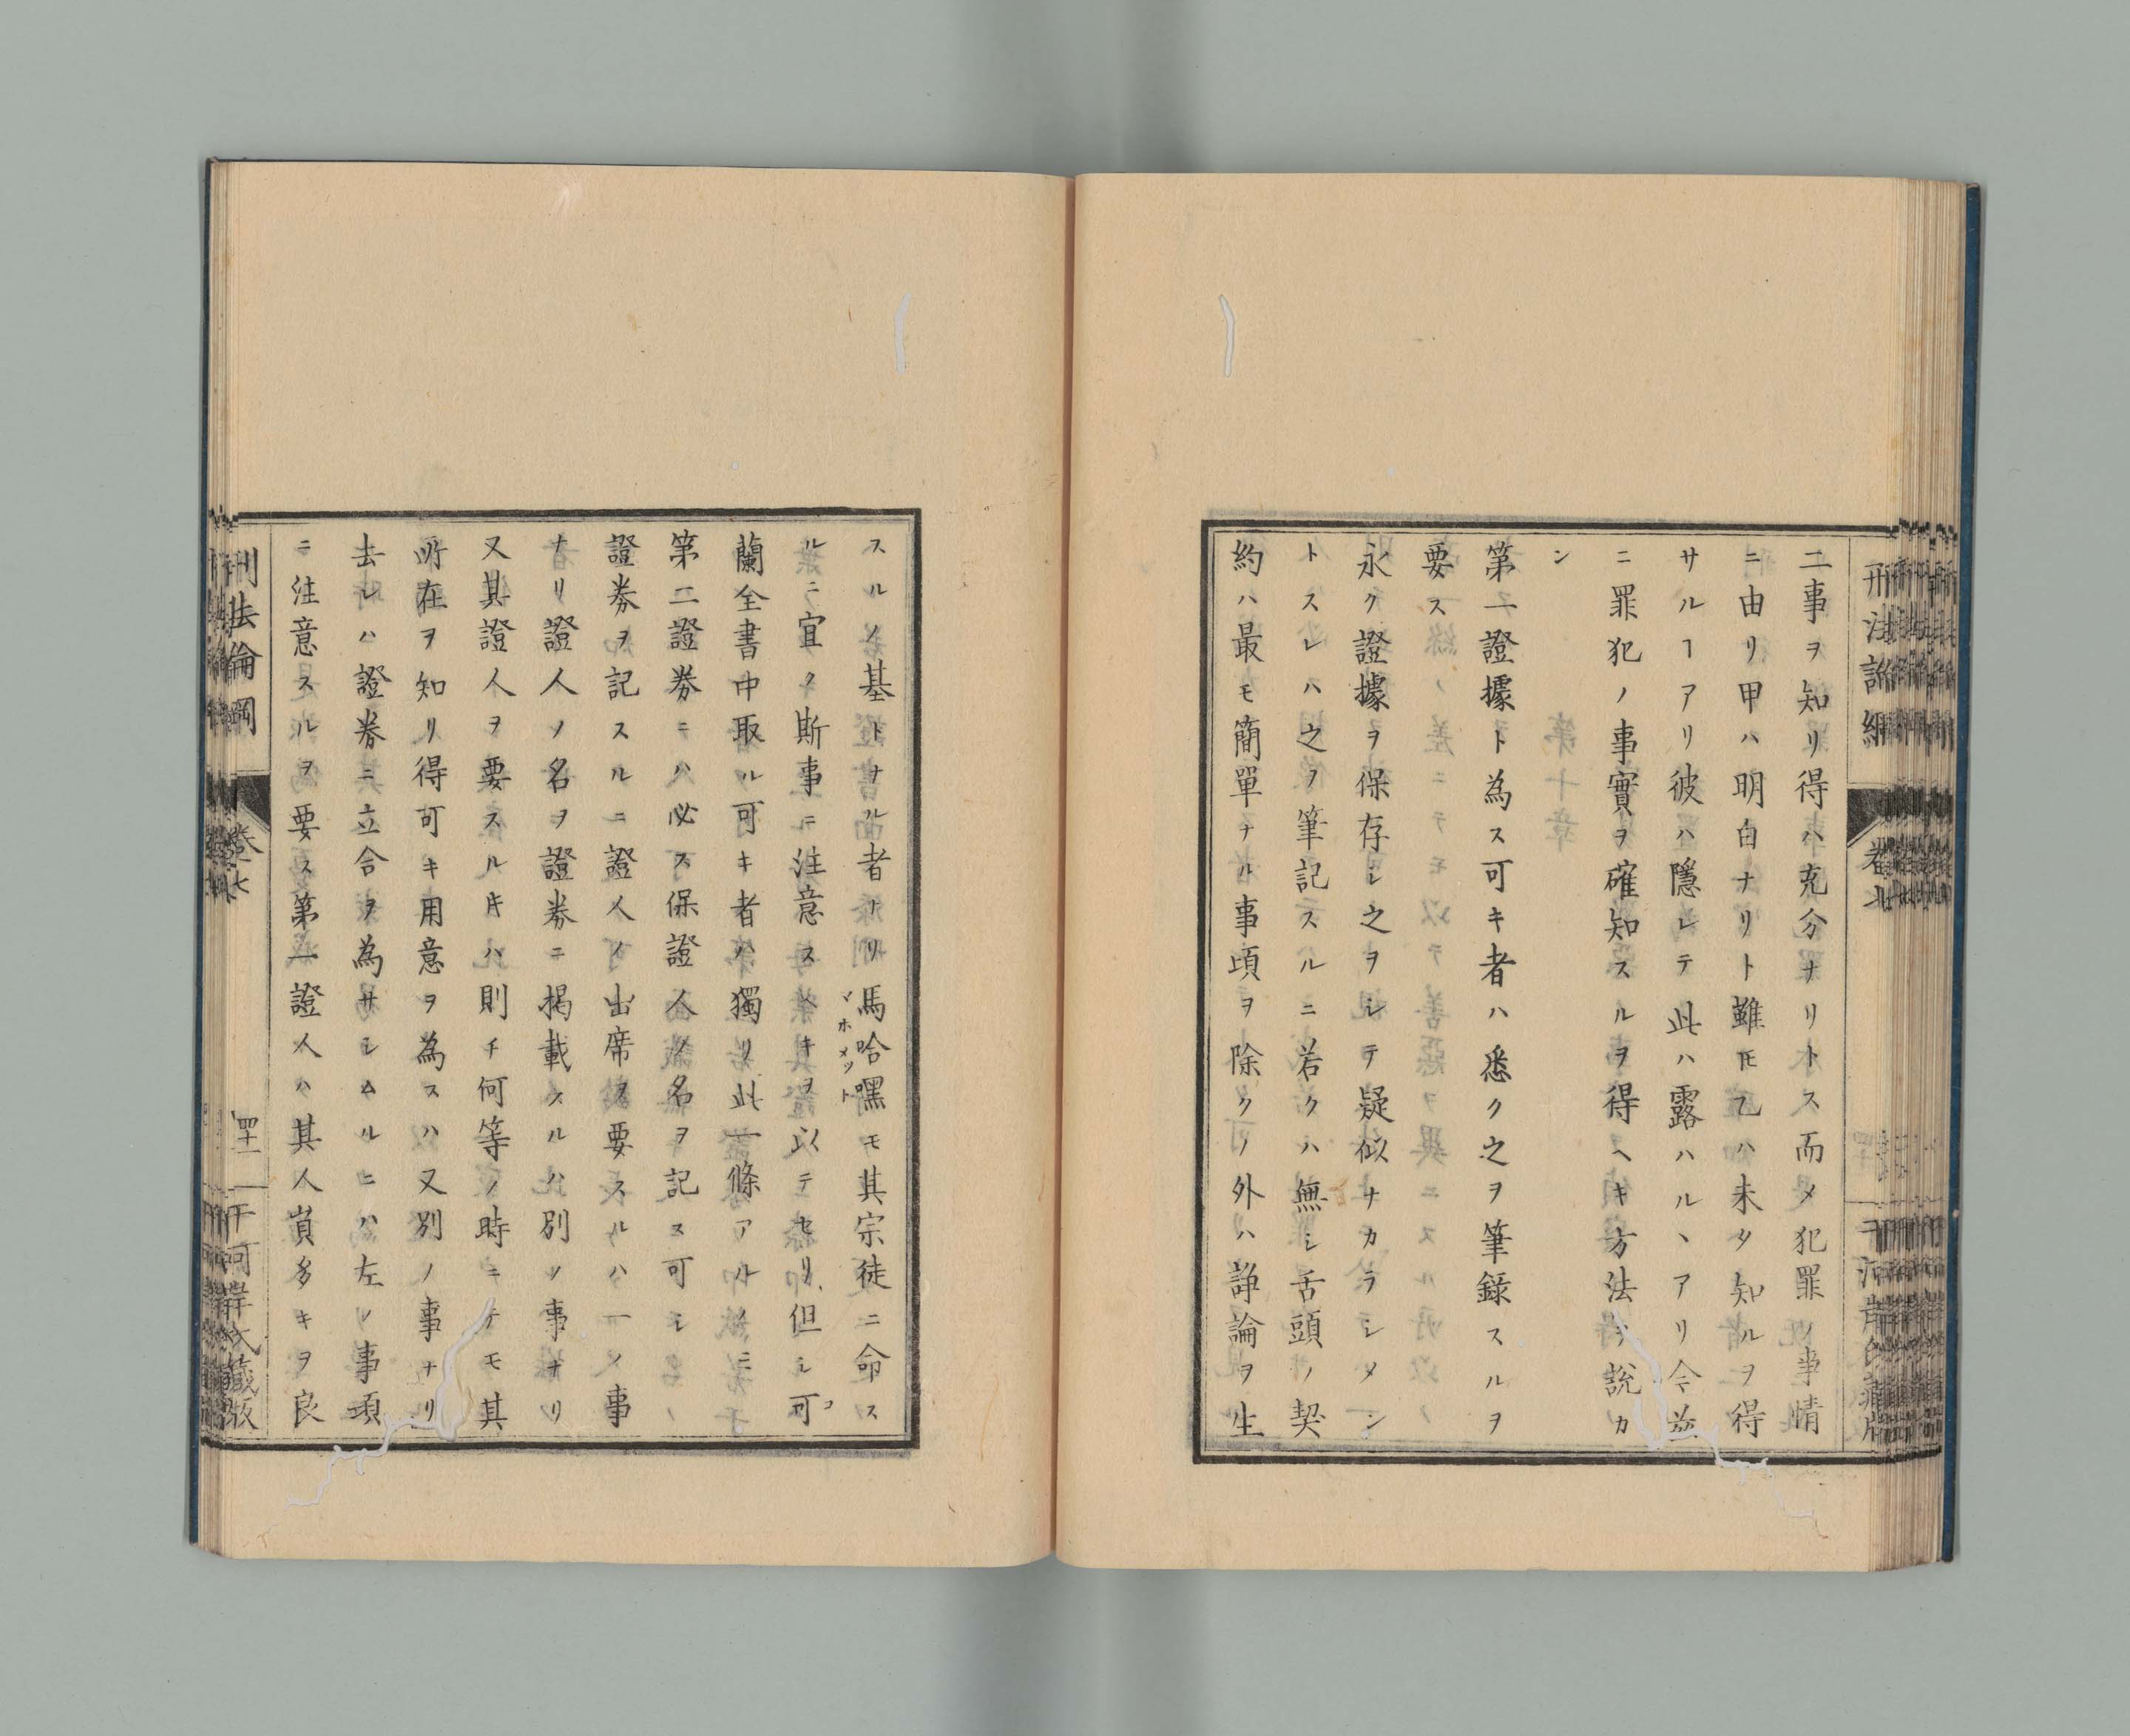 二事ヲ知リ得ハ充分ナリトス而メ犯罪ノ事情
ニ由リ甲ハ明白ナリト雖𪜈乙ハ未タ知ルヲ得
サルヿアリ彼ハ隱レテ此ハ露ハルヽアリ今茲
ニ罪犯ノ事實ヲ確知スルヲ得ヘキ方法ヲ說カ
ン
第一證據ト為ス可キ者ハ悉ク之ヲ筆錄スルヲ
要ス
永ク證據ヲ保存シ之ヲシテ疑似ナカラシメン
トスレハ之ヲ筆記スルニ若クハ無シ舌頭ノ契
約ハ最モ簡單ナル事項ヲ除クノ外ハ諍論ヲ生
スルノ基トナル者ナリ馬哈嘿モ其宗徒ニ命ス
マホメット
ルニ宜ク斯事ニ注意スヘキヲ以テセリ但シ可
コ
蘭全書中取ル可キ者ハ獨リ此一條アルノミ
第二證券ニハ必ス保證人ノ名ヲ記ス可シ
證券ヲ記スルニ證人ノ出席ヲ要スルハ一ノ事
ナリ證人ノ名ヲ證券ニ揭載スルハ別ノ事ナリ
又其證人ヲ要スル𪜈ハ則チ何等ノ時ニテモ其
所在ヲ知リ得可キ用意ヲ為スハ又別ノ事ナリ
去レハ證券ニ立合ヲ為サシムルニハ左ノ事項
ニ注意スルヲ要ス第一證人ハ其人員多キヲ良
刑法論綱
卷七
四十一
干河岸氏藏版